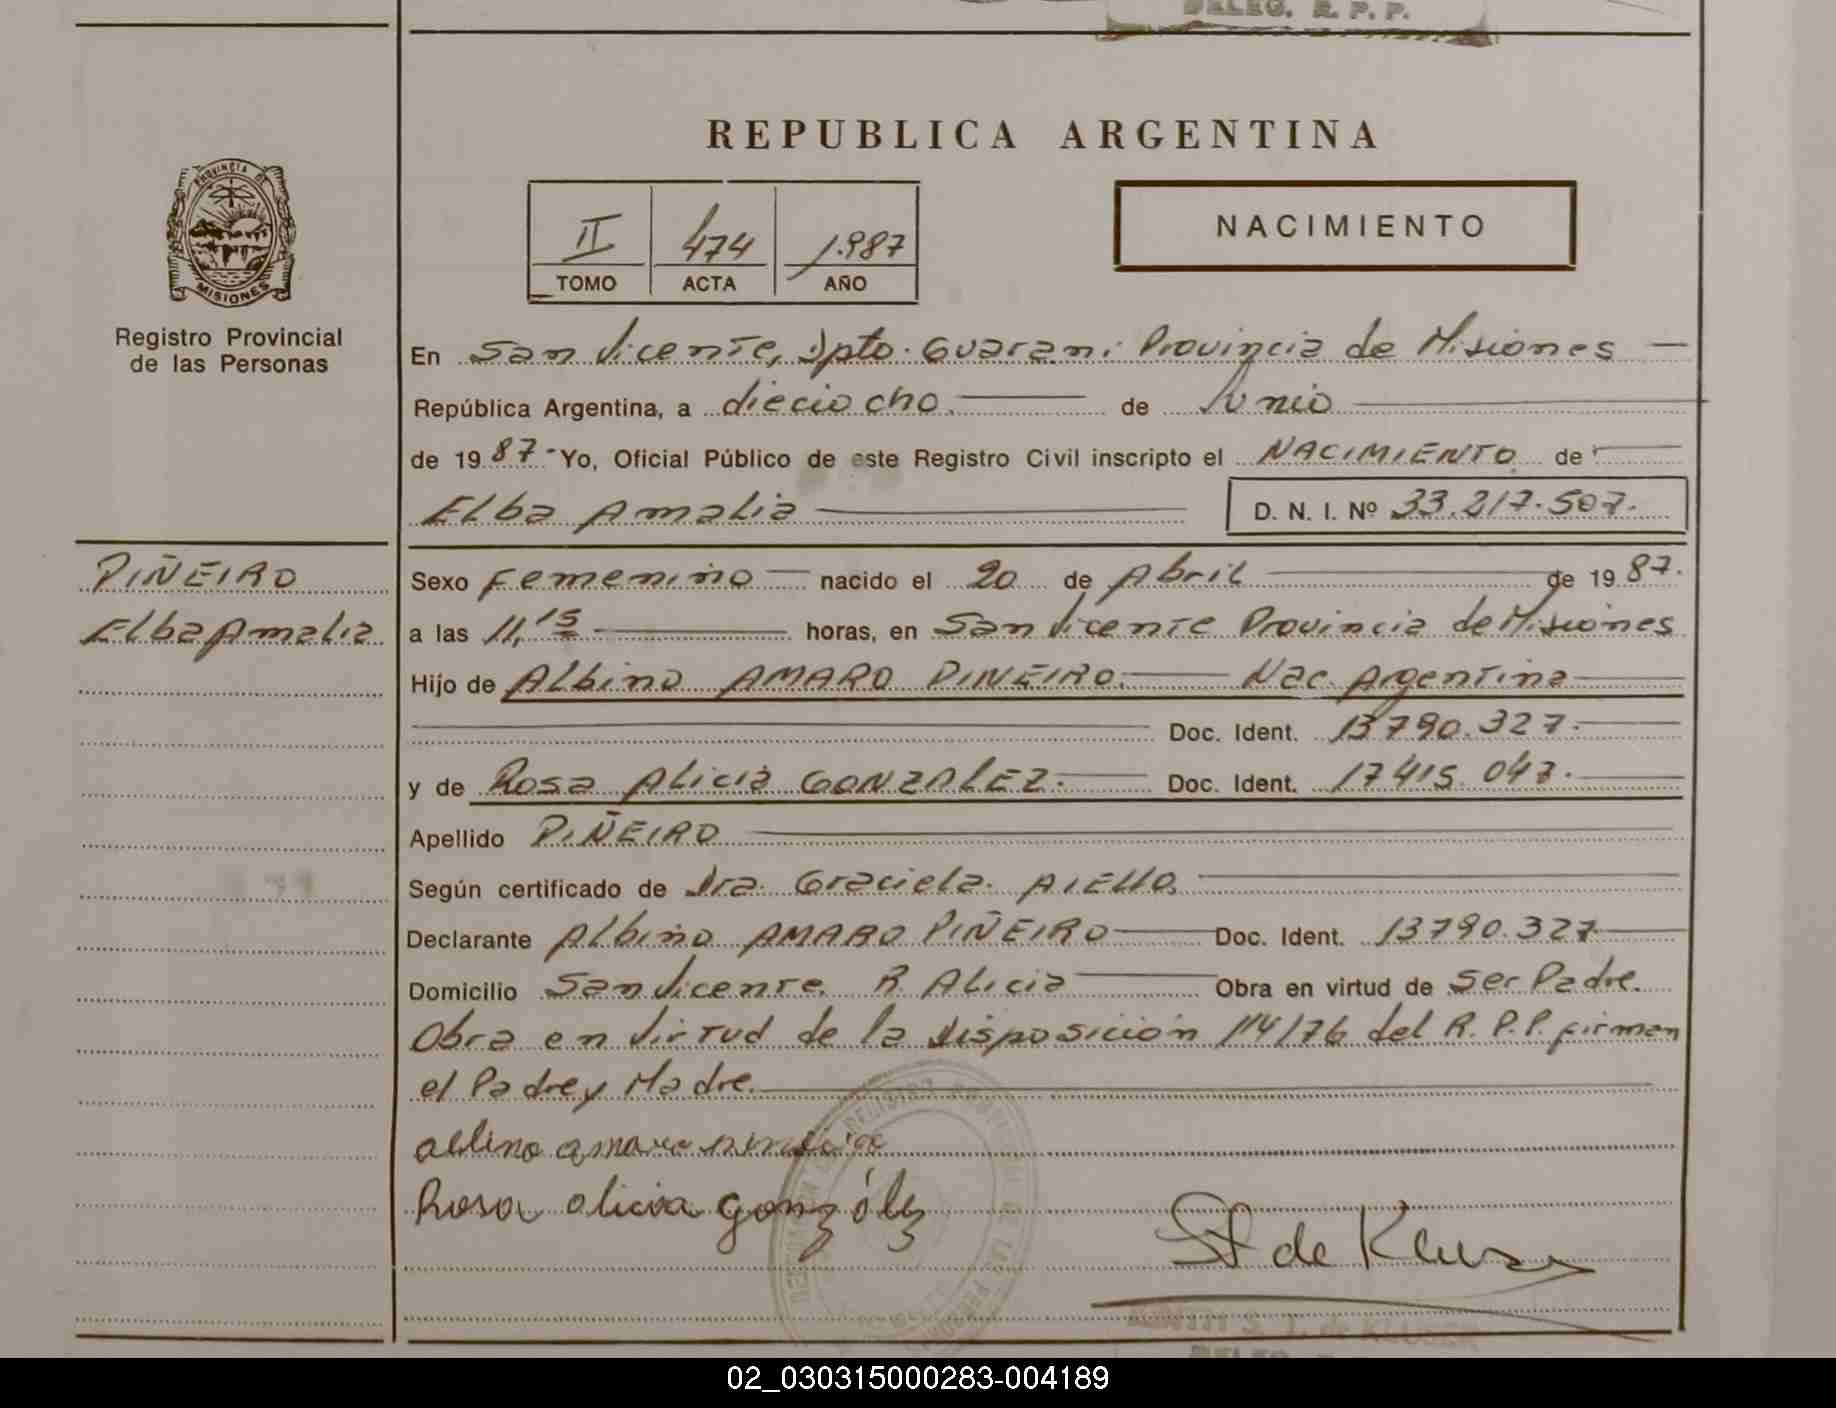 DELEG. R. P. P.
REPUBLICA ARGENTINA
PROVINCIA DE
MISIONES
Registro Provincial
de las Personas
II 474 1.987
TOMO ACTA AÑO
NACIMIENTO
En San Vicente, Dpto. Guarani Provincia de Misiones
República Argentina, a dieciocho. de Junio
de 1987- Yo, Oficial Público de este Registro Civil inscripto el NACIMIENTO de
Elba Amalia D. N. I. Nº 33.217.507.
PIÑEIRO
Elba Amalia
Sexo Femenino nacido el 20 de Abril de 1987.
a las 11,15 horas, en San Vicente Provincia de Misiones
Hijo de Albino AMARO PIÑEIRO. Nac. Argentina
Doc. Ident. 13790.327.
y de Rosa Alicia GONZALEZ. Doc. Ident. 17415.047.
Apellido PIÑEIRO
Según certificado de Dra. Graciela AIELLO.
Declarante Albino AMARO PIÑEIRO Doc. Ident. 13790.327
Domicilio San Vicente. R. Alicia Obra en virtud de Ser Padre.
Obra en virtud de la Disposición 114/76 del R.P.P. firman
el Padre y Madre.
albino amaro
Rosa alicia gonzález
S de Kluser
S. T. de KLUSER
02_030315000283-004189